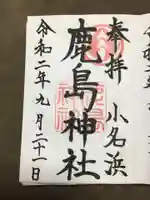 奉拝 小名浜
鹿島神社
令和二年九月二十一日